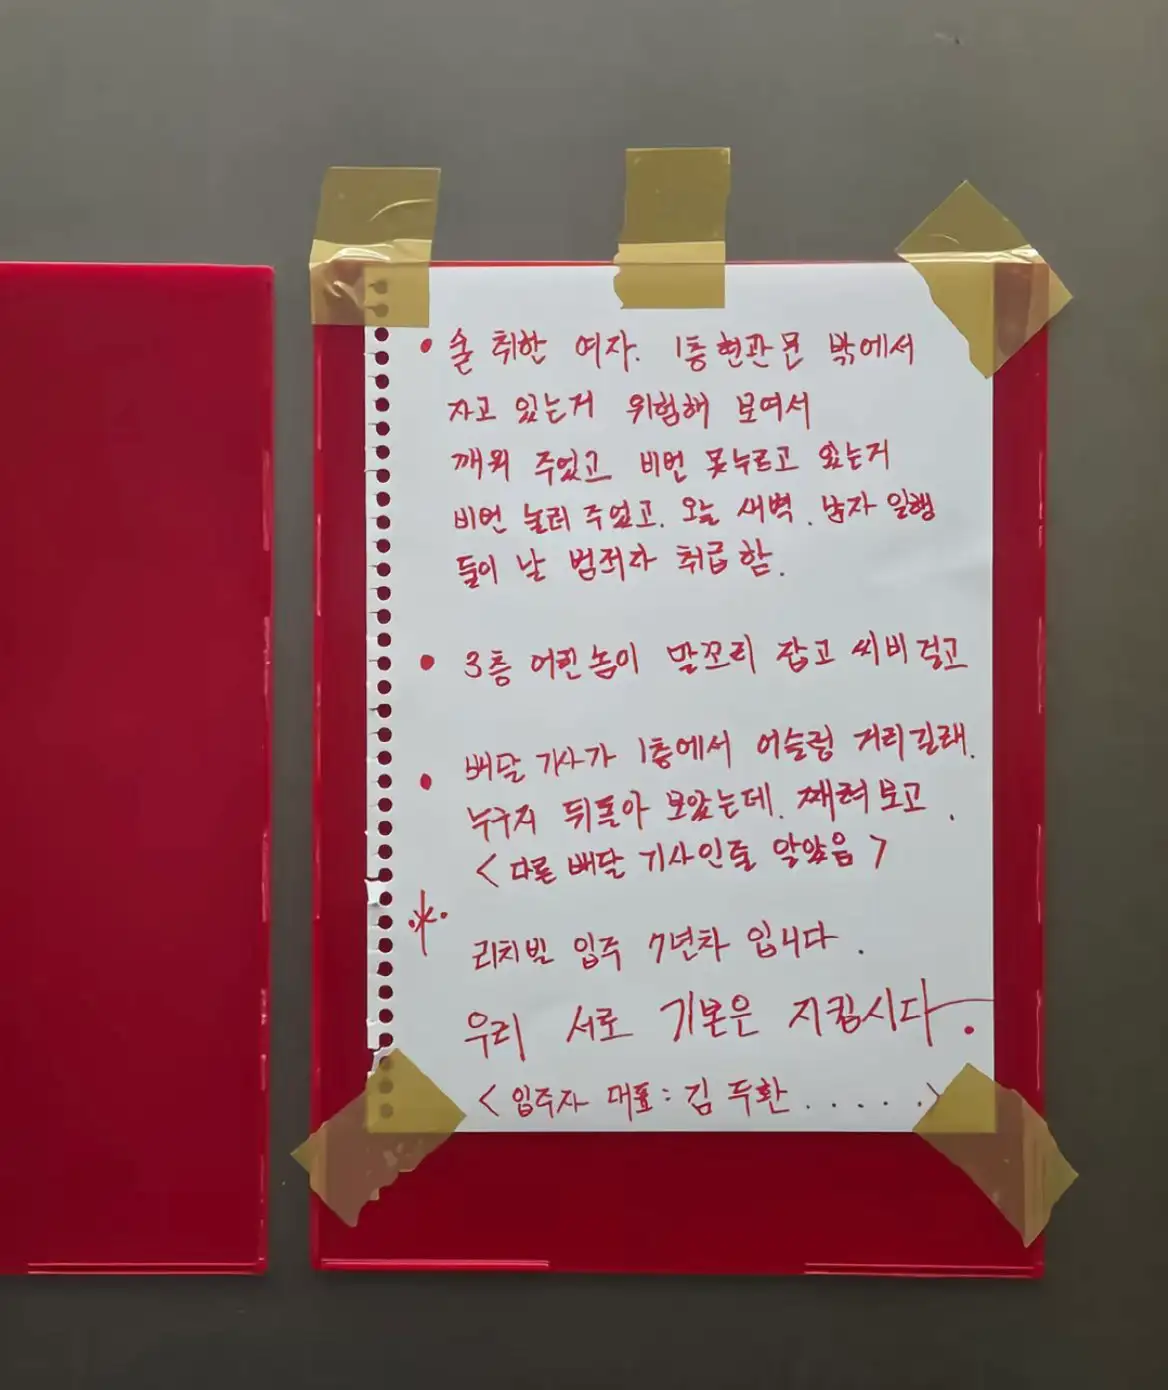 • 술 취한 여자. 1층 현관문 밖에서
자고 있는거 위험해 보여서
깨워 주었고 비번 못누르고 있는거
비번 눌러 주었고. 오늘 새벽. 남자 일행
들이 날 범죄자 취급함.
• 3층 어린놈이 말꼬리 잡고 씨비걸고
• 배달기사가 1층에서 어슬렁 거리길래.
누구지 뒤돌아 보았는데. 째려보고.
< 다른 배달 기사인줄 알았음 >
※ 리치빌 입주 7년차 입니다.
우리 서로 기본은 지킵시다.
< 입주자 대표 : 김두환 . . . . . >